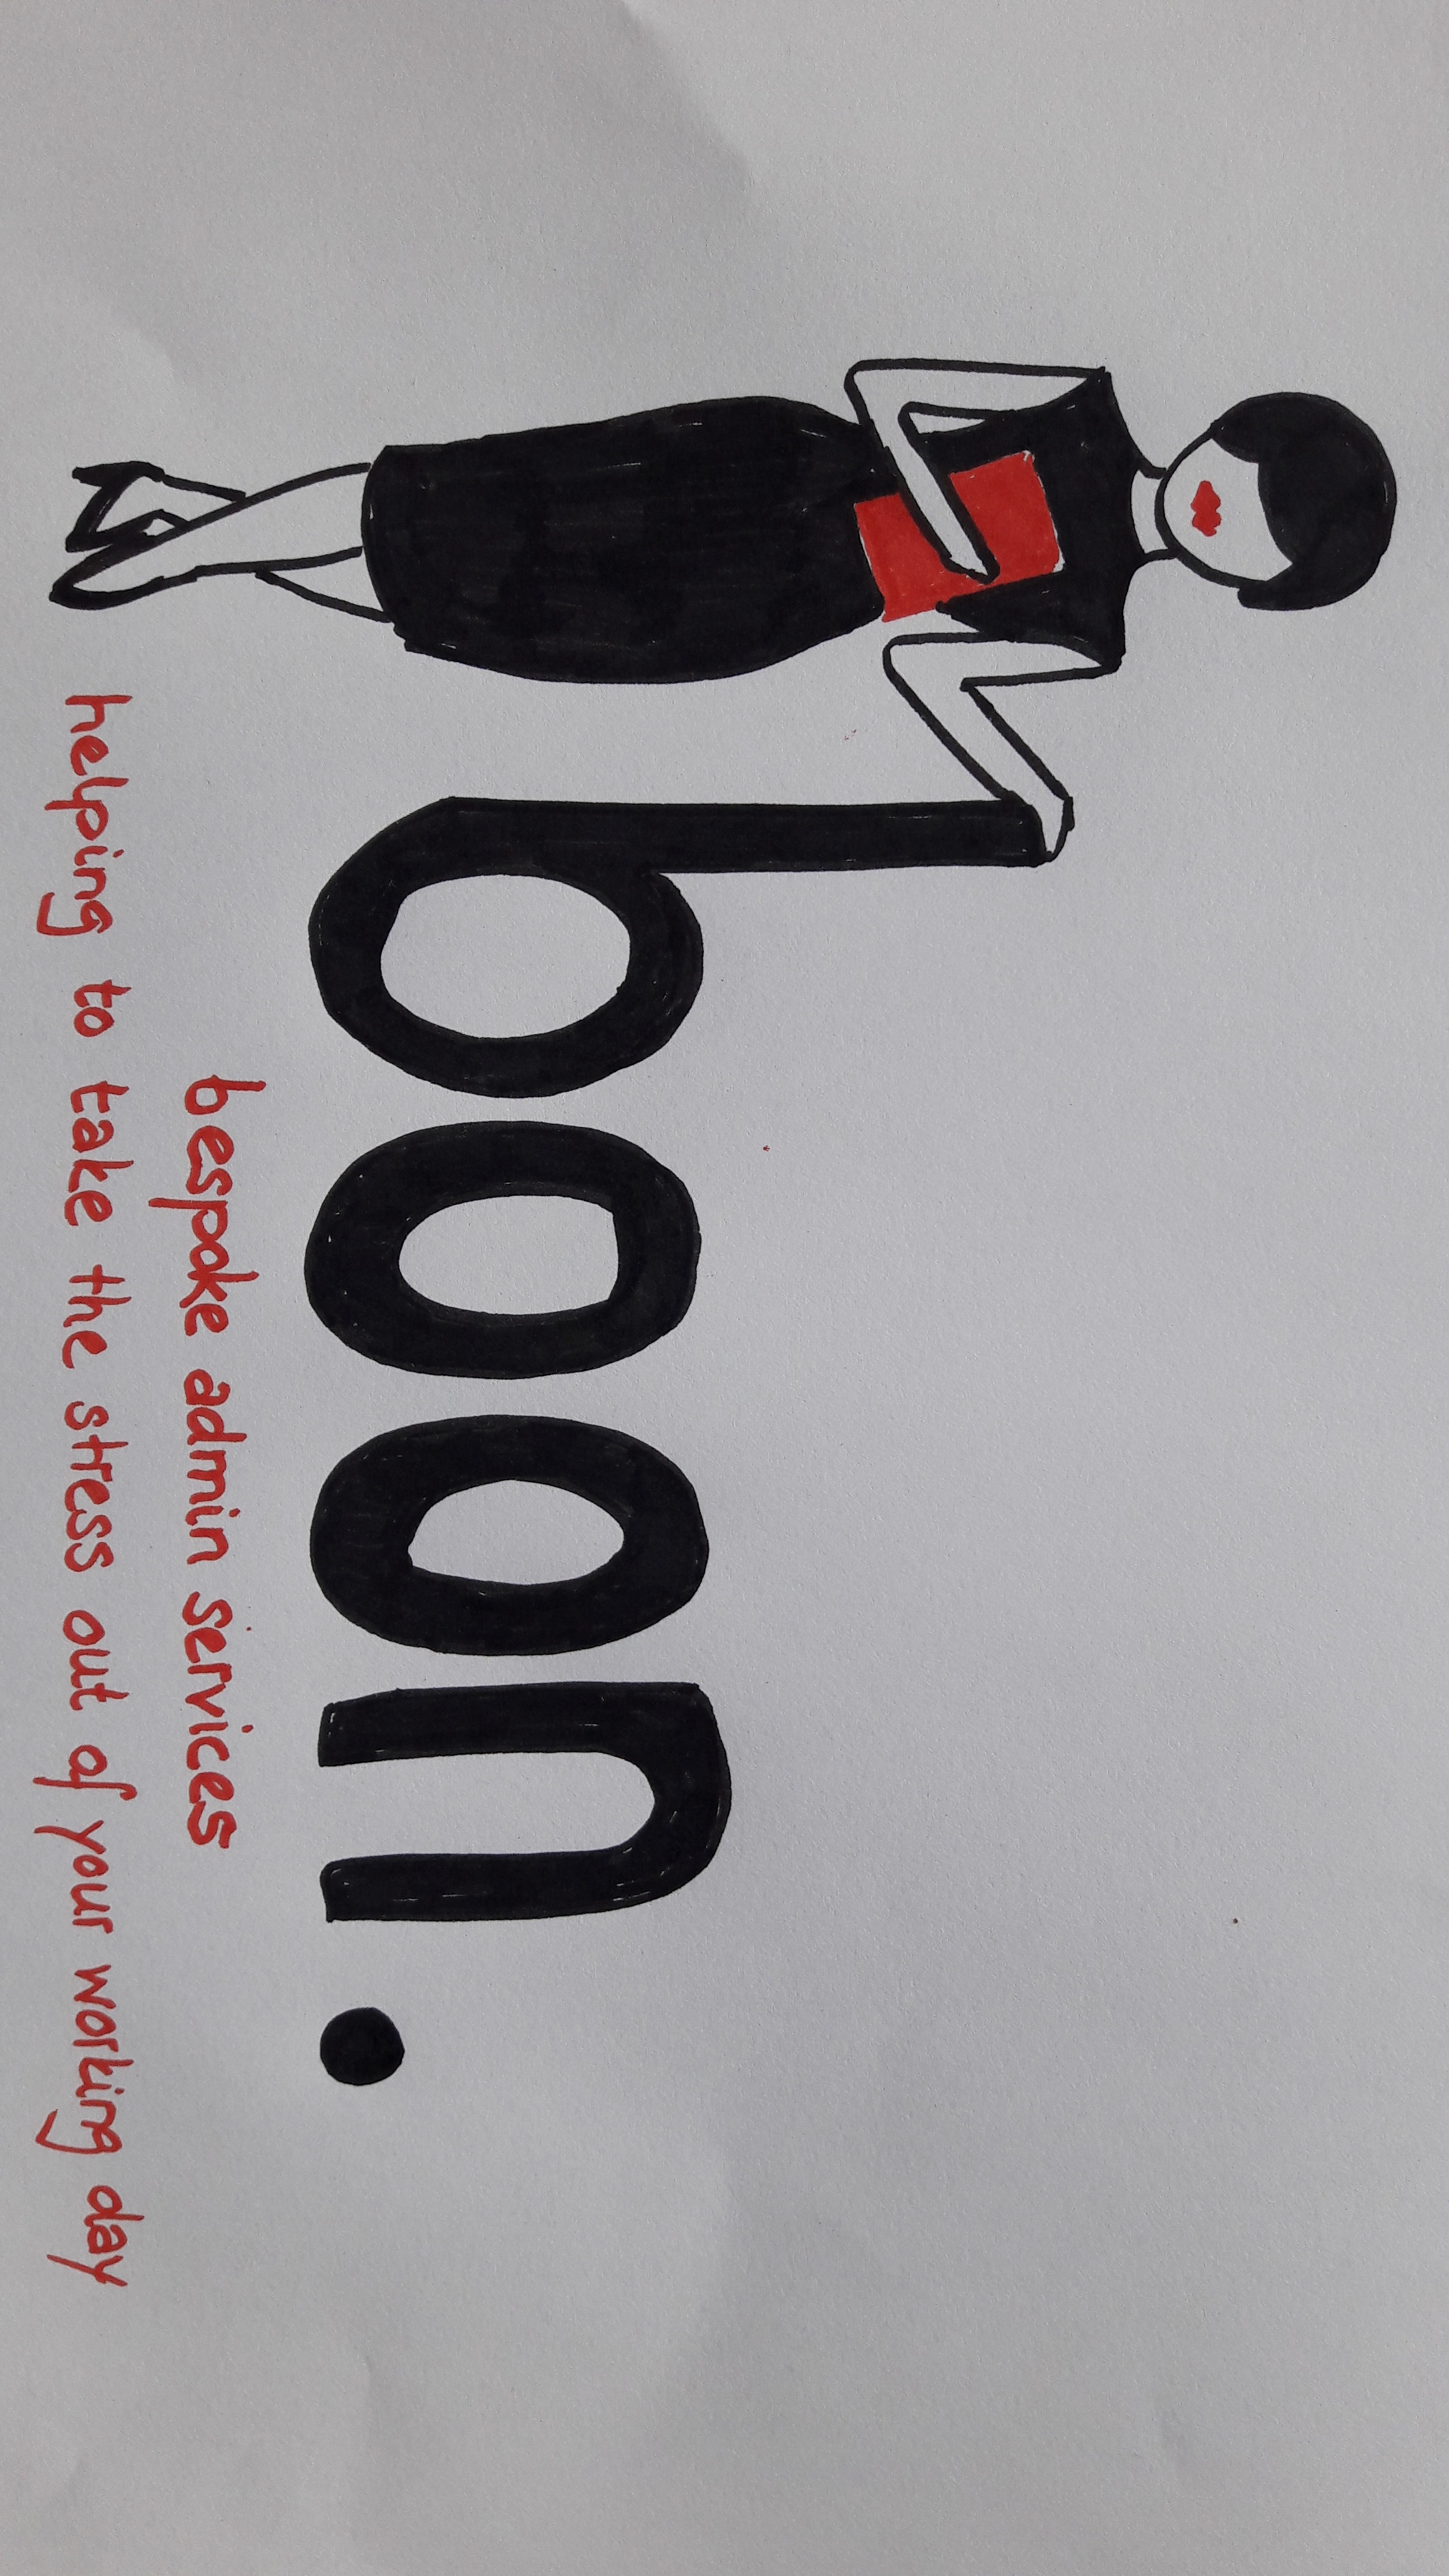 boon.
bespoke admin services
helping to take the stress out of your working day